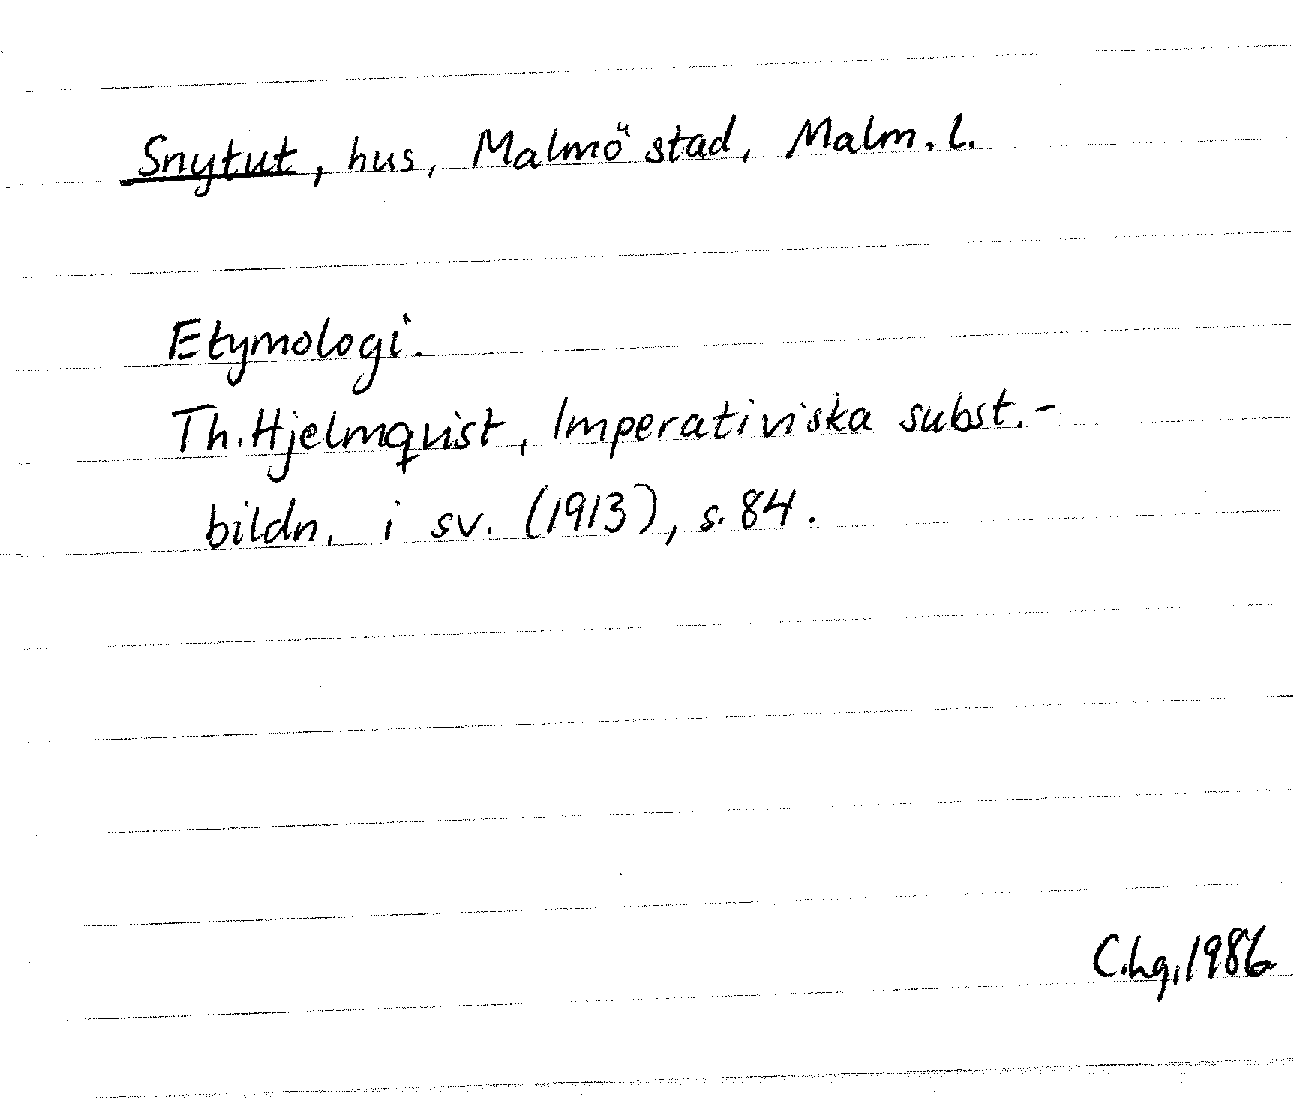 Snytut, hus, Malmö stad, Malm. l.
Etymologi.
Th. Hjelmqvist, Imperativiska subst.-
bildn. i sv. (1913), s. 84.
C.hq, 1986